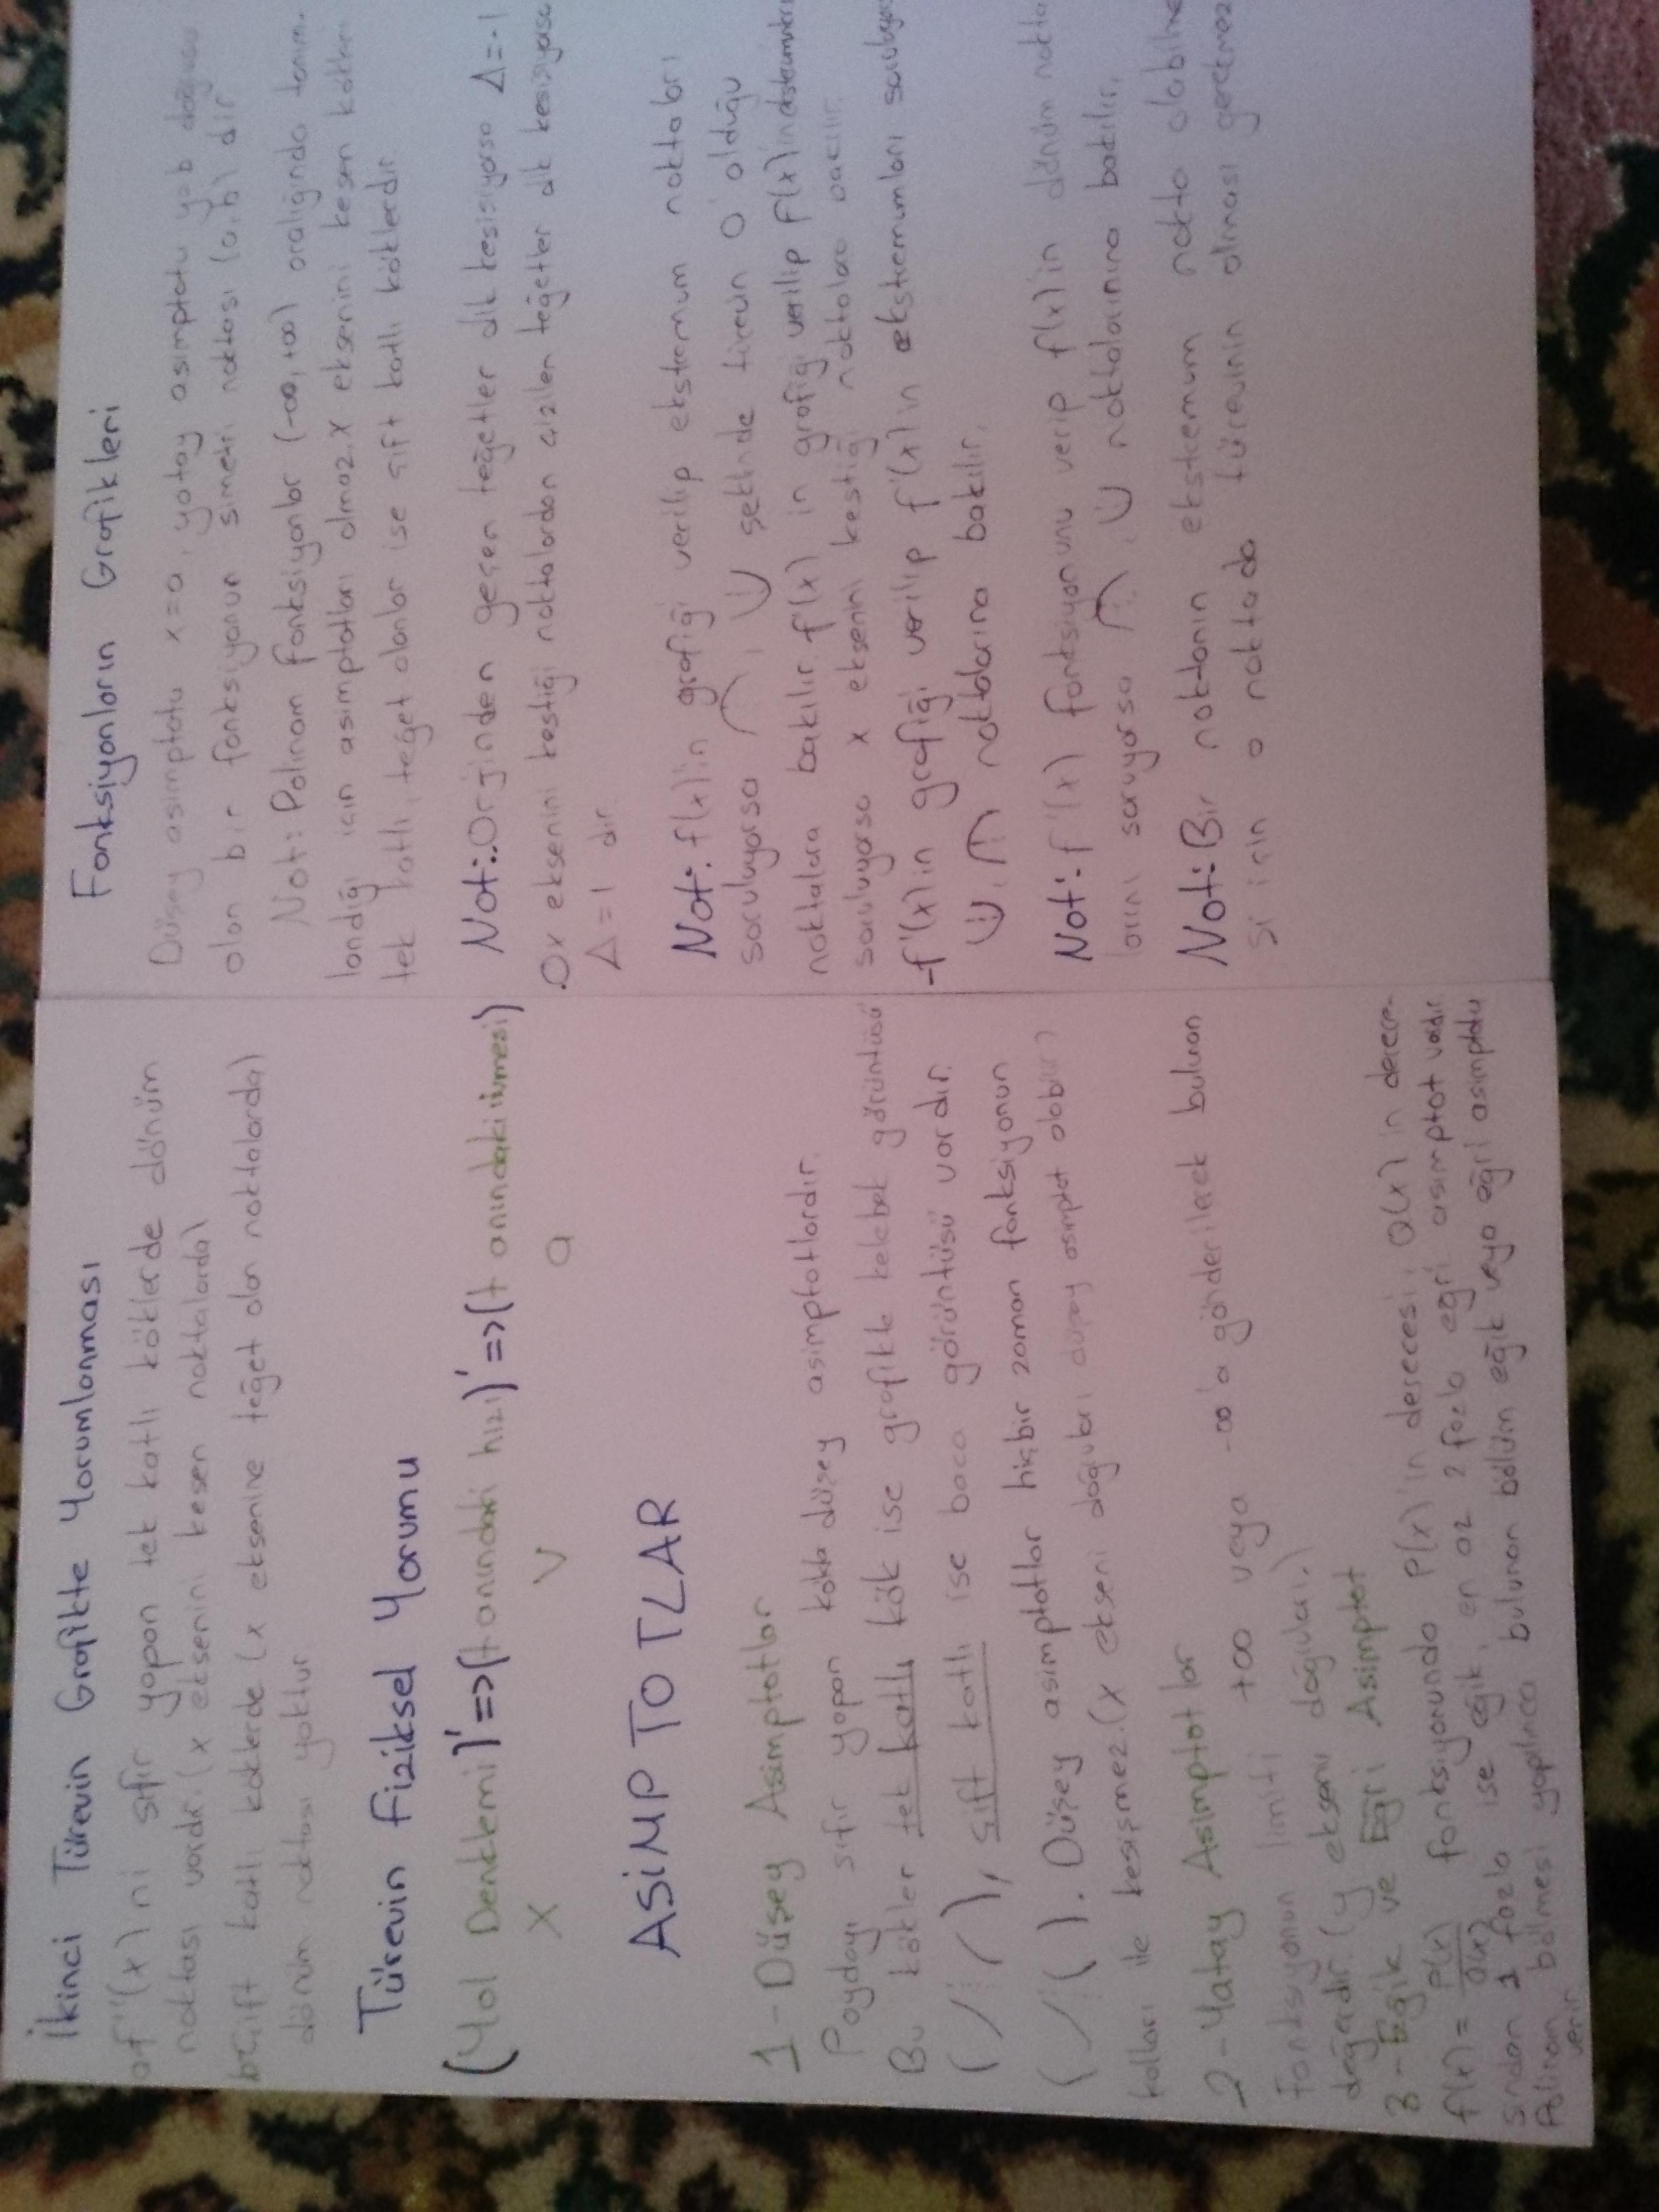 İkinci Türevin Grafikte Yorumlanması
a) f''(x) ni sıfır yapan tek katlı köklerde dönüm
noktası vardır. (x eksenini kesen noktalarda)
b) Çift katlı köklerde (x eksenine teğet olan noktalarda)
dönüm noktası yoktur.
Türevin Fiziksel Yorumu
(Yol Denklemi)' => (t anındaki hızı)' => (t anındaki ivmesi)
X V a
ASİMPTOTLAR
1 - Düşey Asimptotlar
Paydayı sıfır yapan kökte düşey asimptotlardır.
Bu kökler tek katlı kök ise grafikte kelebek görüntüsü
, çift katlı ise baca görüntüsü vardır.
. Düşey asimptotlar hiçbir zaman fonksiyonun
kolları ile kesişmez. (x ekseni doğruları düşey asimptot olabilir)
2 - Yatay Asimptotlar
Fonksiyonun limiti +∞ veya -∞'a gönderilerek bulunan
değerdir. (y ekseni doğruları)
3 - Eğik ve Eğri Asimptot
f(x) = P(x)/Q(x) fonksiyonunda P(x)'in derecesi, Q(x)'in derece-
sinden 1 fazla ise eğik, en az 2 fazla eğri asimptot vardır.
Polinom bölmesi yapılınca bulunan bölüm eğik veya eğri asimptotu
verir
Fonksiyonların Grafikleri
Düşey asimptotu x=a, yatay asimptotu y=b doğrusu
olan bir fonksiyonun simetri noktası (a,b) dir
Not: Polinom fonksiyonlar (-∞,+∞) aralığında tanım-
landığı için asimptotları olmaz. X eksenini kesen kökleri
tek katlı, teğet olanlar ise çift katlı köklerdir.
Not: . Orjinden geçen teğetler dik kesişiyorsa Δ=-1
. Ox eksenini kestiği noktalardan çizilen teğetler dik kesişiyorsa
Δ=1 dir.
Not: . f(x)'in grafiği verilip ekstremum noktaları
soruluyorsa , şeklinde türevin 0 olduğu
noktalara bakılır. f'(x) in grafiği verilip f(x)'in ekstremumları
soruluyorsa x eksenini kestiği noktalara bakılır.
- f'(x) in grafiği verilip f'(x) in ekstremumları soruluyorsa
, noktalarına bakılır.
Not: . f'(x) fonksiyonunu verip f(x)'in dönüm nokta
larını soruyorsa , noktalarına bakılır.
Not: Bir noktanın ekstremum nokta olabilme
si için o noktada türevinin olması gerekmez